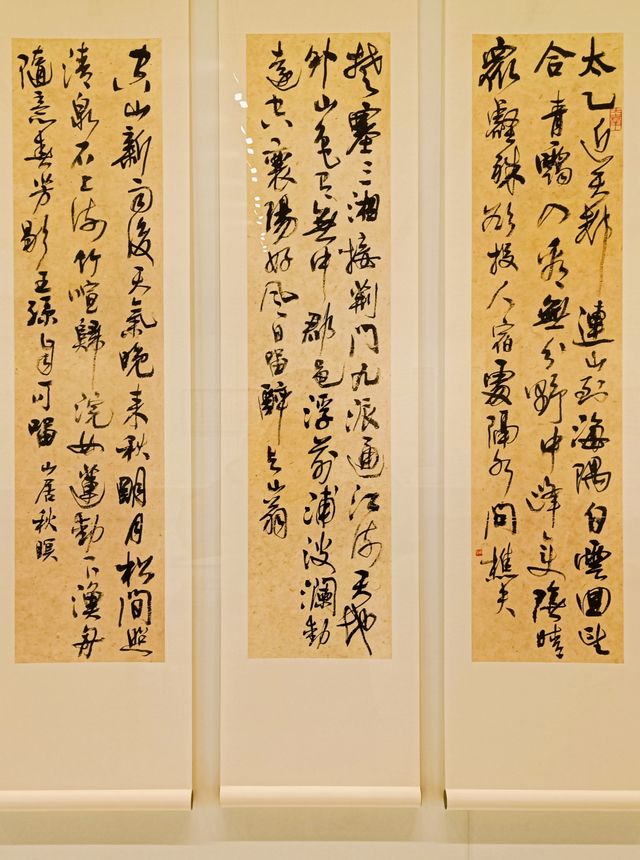 太乙近天都連山到海隅白雲回望
合青靄入看無分野中峰變陰晴
衆壑殊欲投人宿處隔水問樵夫
楚塞三湘接荊門九派通江流天地
外山色有無中郡邑浮前浦波瀾動
遠空襄陽好風日留醉與山翁
空山新雨後天氣晚來秋明月松間照
清泉石上流竹喧歸浣女蓮動下漁舟
隨意春芳歇王孫自可留山居秋暝